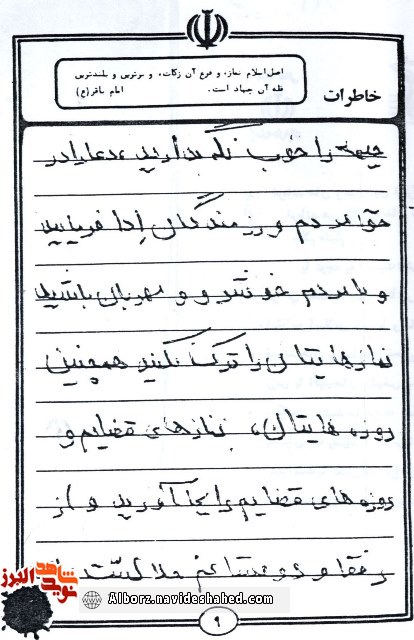 اصل اسلام نماز، و فرع آن زکات، و برترین و بلندترین
قله آن جهاد است. امام باقر(ع)
خاطرات
جبهه را خوب نگه بدارید، دعا را در
حق مردم و رزمندگان ادا فرمایید
و با مردم خوشرو و مهربان باشید
نمازهایتان را ترک نکنید همچنین
روزه هایتان، نمازهای قضایم و
روزه های قضایم را بجا آورید و از
رفقا و دوستانم حلالیت
شاهد البرز
نوید
Alborz.navideshahed.com
۹